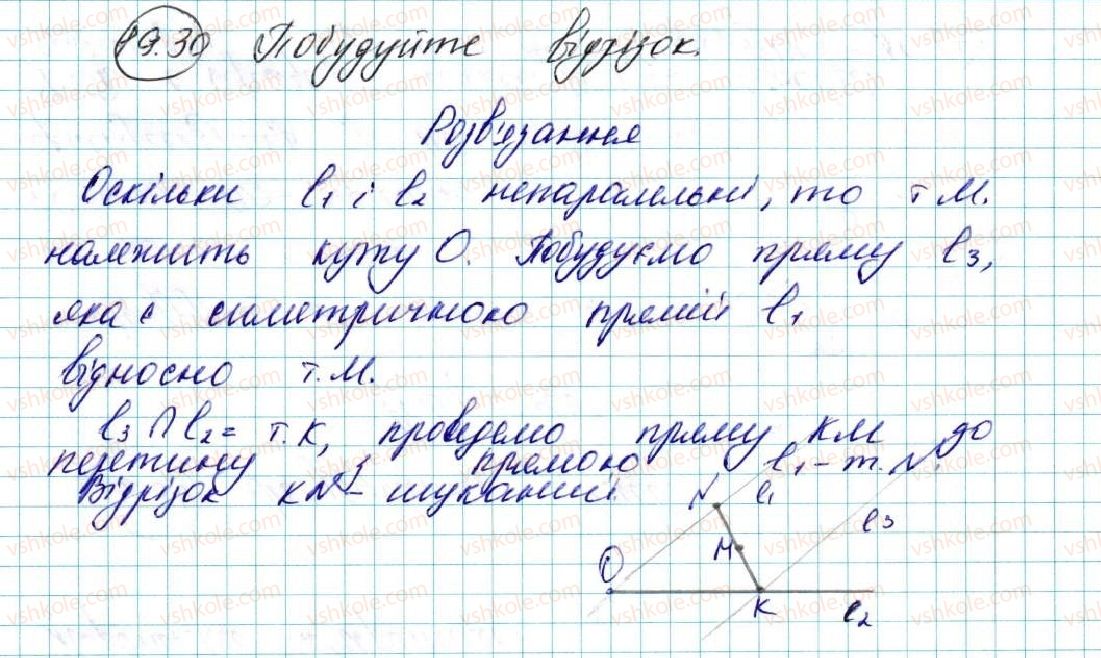 19.30 Побудуйте відрізок.
Розв'язання
Оскільки l₁ і l₂ непаралельні, то т М.
належить куту О. Побудуємо пряму l₃,
яка є симетричною прямій l₁
відносно т.М.
l₃ ∩ l₂ = т.К, проведемо пряму КМ до
перетину з прямою l₁ - т. N.
Відрізок KN - шуканий
N l₁
l₃
M
O
K l₂